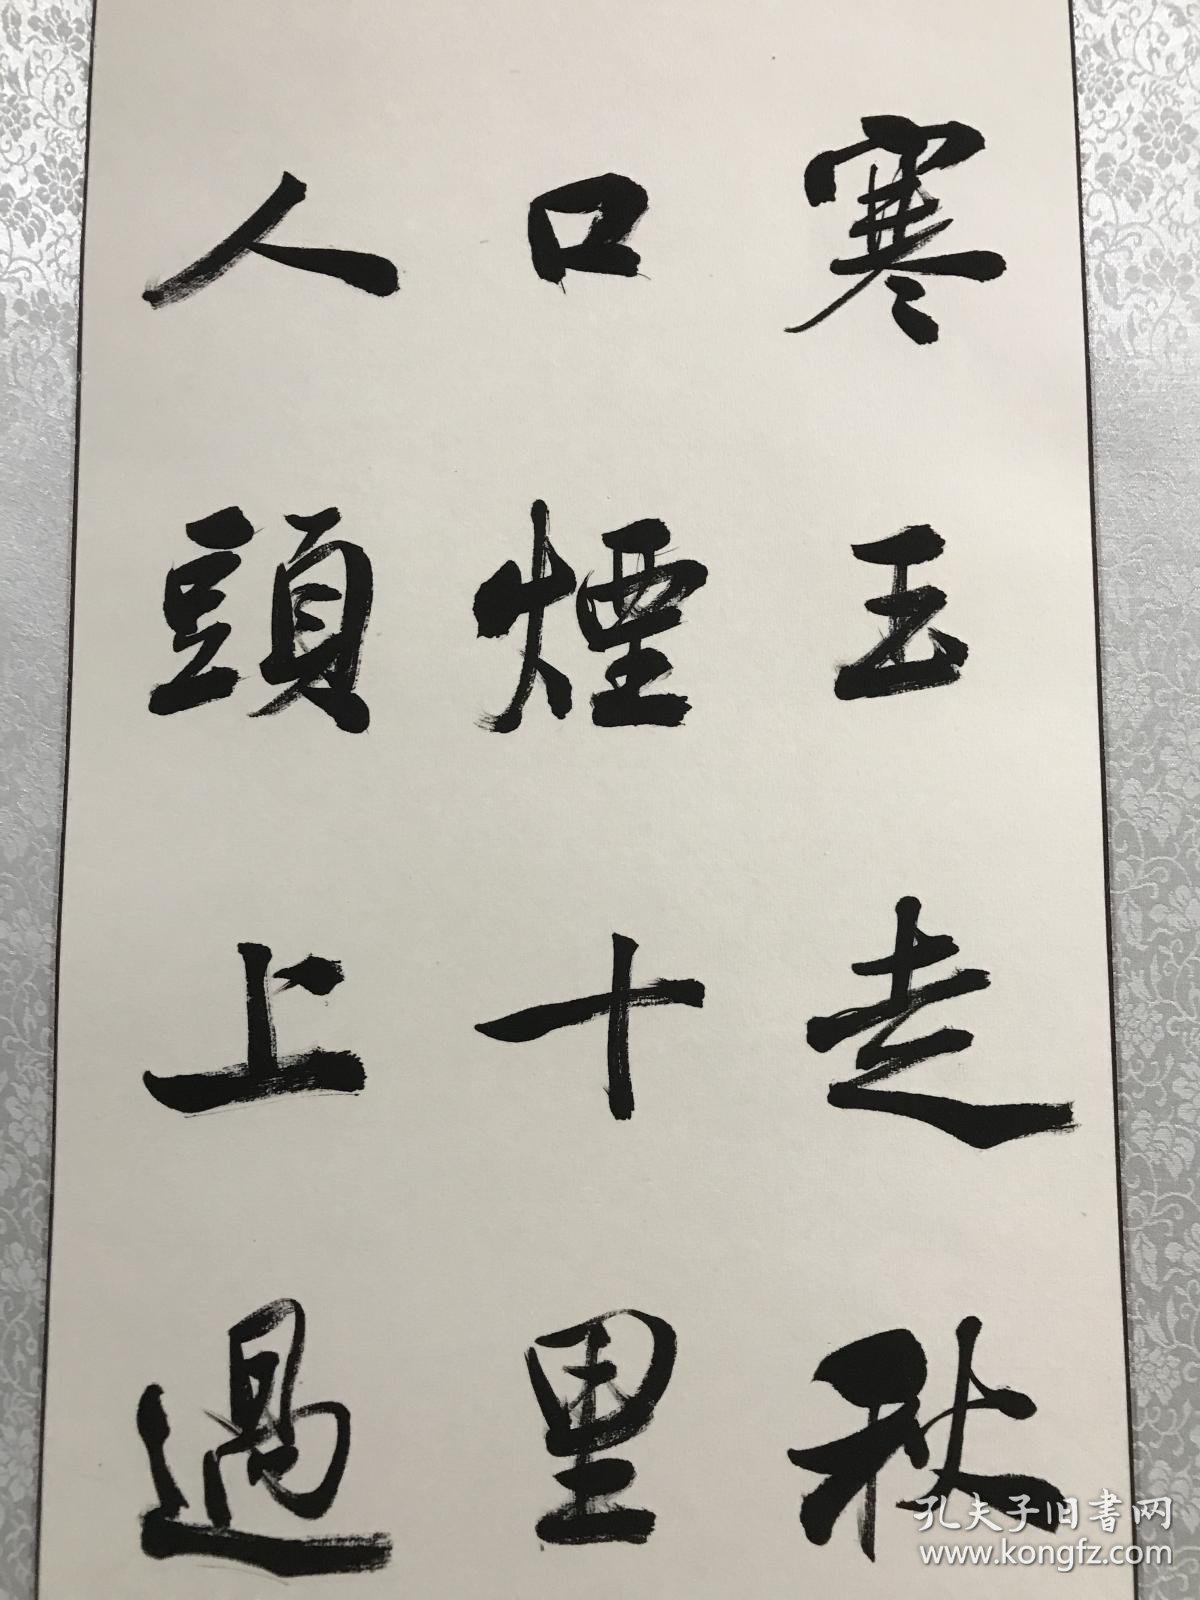 寒玉走秋
口煙十里
人頭上過
孔夫子旧書网
www.kongfz.com